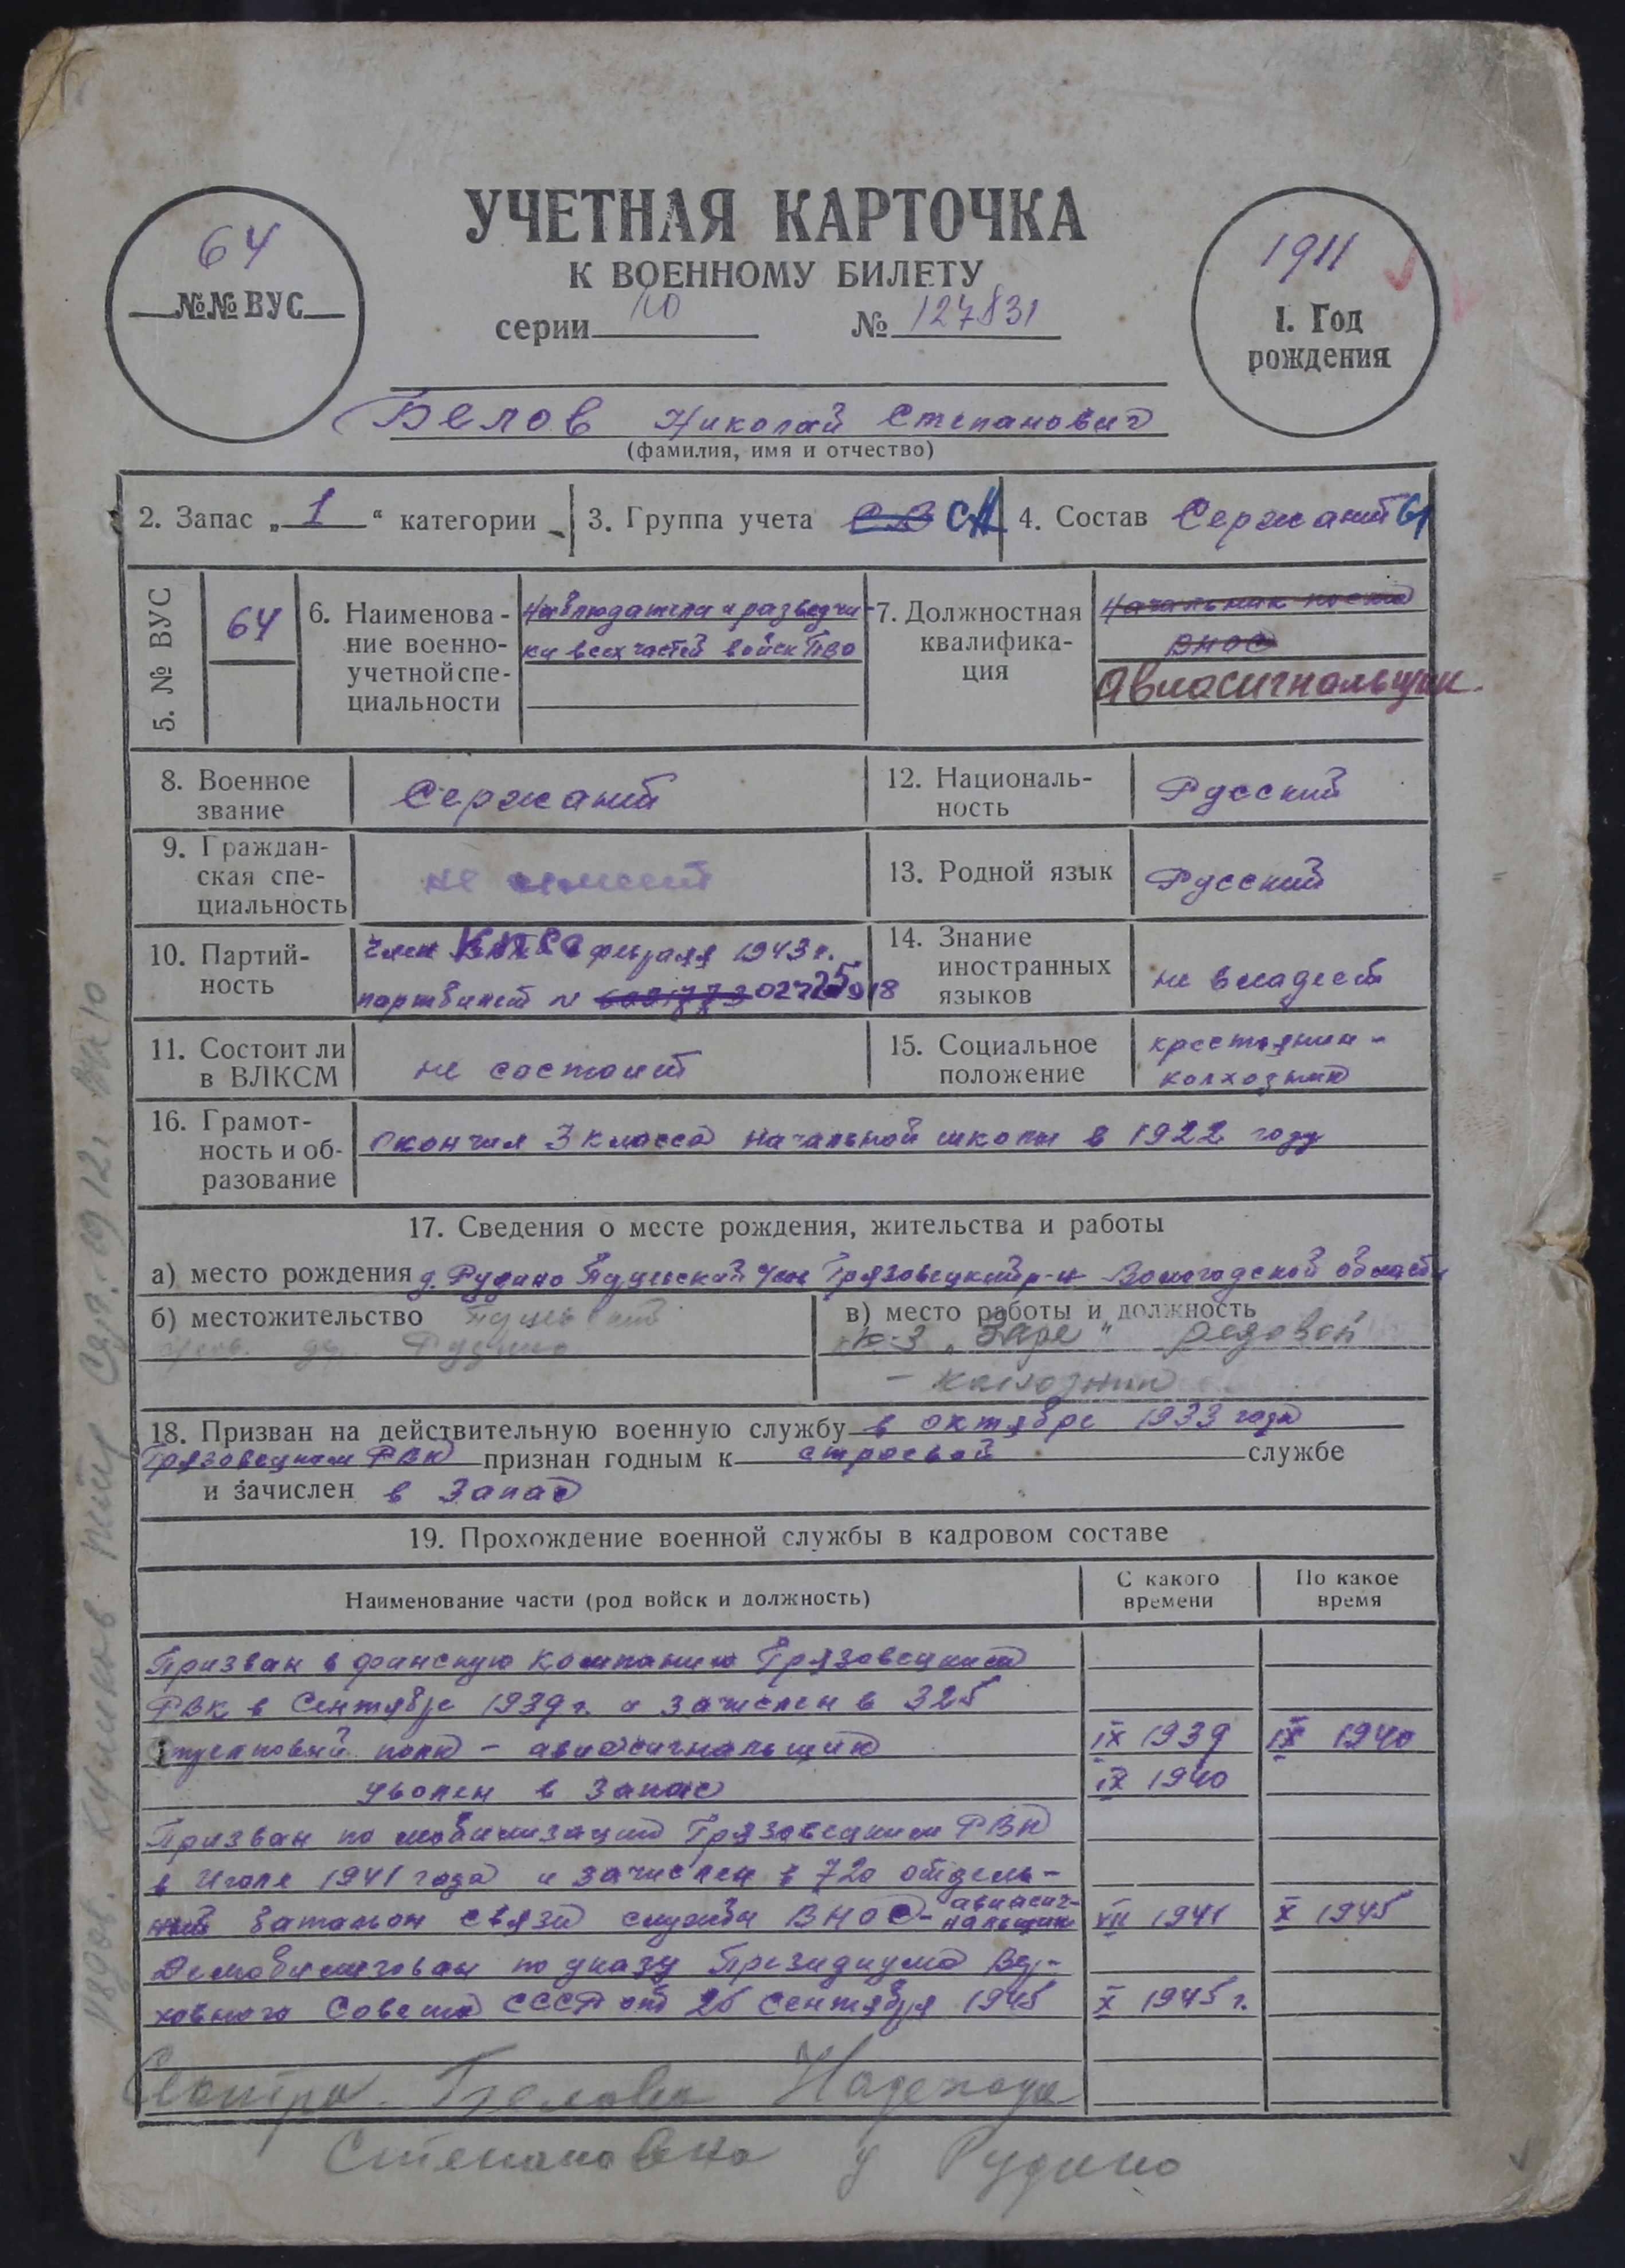 УЧЕТНАЯ КАРТОЧКА
К ВОЕННОМУ БИЛЕТУ
64
№№ ВУС
серии Ю № 127831
1911
1. Год
рождения
Белов Николай Степанович
(фамилия, имя и отчество)
2. Запас „1“ категории
3. Группа учета СА
4. Состав Сержант
5. № ВУС
64
6. Наименова-
ние военно-
учетной спе-
циальности
Наблюдатели и разведчи-
ки всех частей войск ПВО
7. Должностная
квалифика-
ция
Начальник поста
ВНОС
Авиасигнальщик.
8. Военное
звание
Сержант
12. Националь-
ность
Русский
9. Граждан-
ская спе-
циальность
не имеет
13. Родной язык
Русский
10. Партий-
ность
член февраля 1943 г.
партбилет №
14. Знание
иностранных
языков
не владеет
11. Состоит ли
в ВЛКСМ
не состоит
15. Социальное
положение
крестьянин-
колхозник
16. Грамот-
ность и об-
разование
окончил 3 класса начальной школы в 1922 году
17. Сведения о месте рождения, жительства и работы
а) место рождения д. Рудино Грязовецкий р-н Вологодской области
б) местожительство
дер. Рудино
в) место работы и должность
к-з „Заря“ рядовой
- колхозник
18. Призван на действительную военную службу в октябре 1933 года
Грязовецким РВК признан годным к строевой службе
и зачислен в запас
19. Прохождение военной службы в кадровом составе
Наименование части (род войск и должность)
С какого
времени
По какое
время
Призван в финскую компанию Грязовецким
РВК в Сентябре 1939 г. и зачислен в 325
стрелковый полк - авиасигнальщик IX 1939 IX 1940
уволен в запас IX 1940
Призван по мобилизации Грязовецким РВК
в Июле 1941 года и зачислен в 720 отдель-
ный батальон связи службы ВНОС - авиасиг-
нальщик VII 1941 X 1945
Демобилизован по указу Президиума Вер-
ховного Совета СССР от 25 сентября 1945 X 1945 г.
Сестра Белова Надежда
Степановна д Рудино